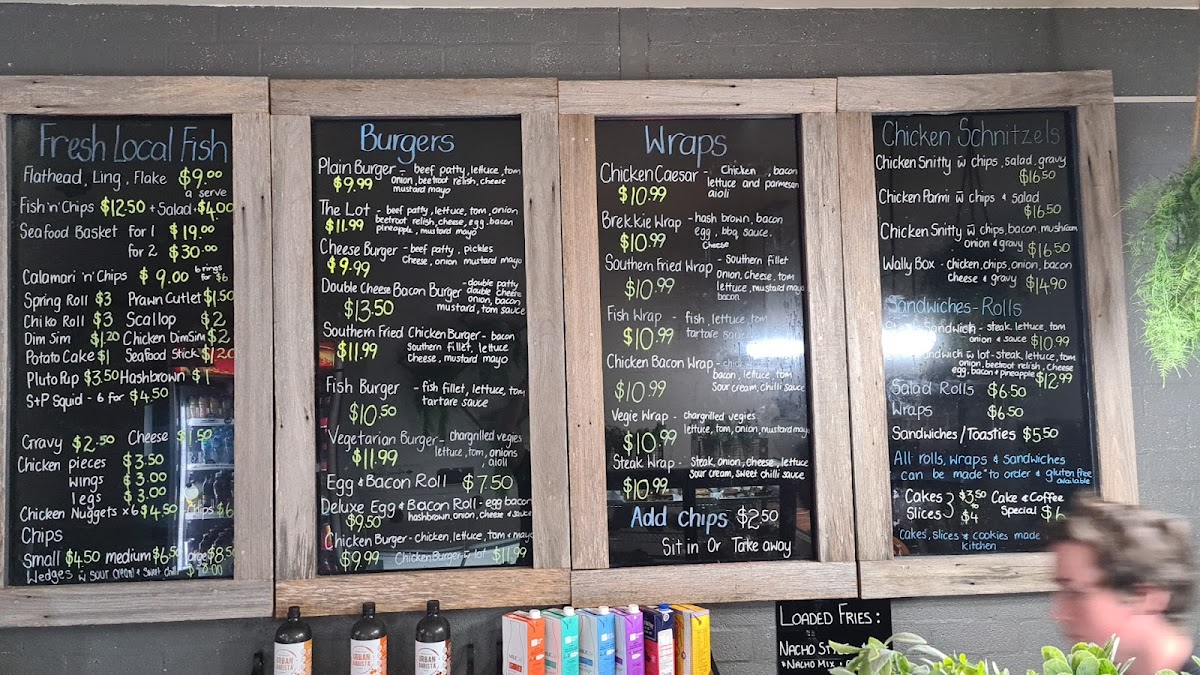 Fresh Local Fish
Flathead, Ling, Flake $9.00
a serve
Fish 'n' Chips $12.50 + Salad + $4.00
Seafood Basket for 1 $19.00
for 2 $30.00
Calamari 'n' Chips $9.00 6 rings for $6
Spring Roll $3 Prawn Cutlet $1.50
Chiko Roll $3 Scallop $2
Dim Sim $1.20 Chicken Dim Sim $2
Potato Cake $1 Seafood Stick $1.20
Pluto Pup $3.50 Hashbrown $1
S+P Squid - 6 for $4.50
Gravy $2.50 Cheese $1.50
Chicken pieces $3.50
wings $3.00
legs $3.00
Chicken Nuggets x6 $4.50 chips $6
Chips
Small $4.50 medium $6.50 large $8.50
Wedges w̄ sour cream & sweet chilli
Burgers
Plain Burger - beef patty, lettuce, tom
$9.99 onion, beetroot relish, cheese
mustard mayo
The Lot - beef patty, lettuce, tom, onion
$11.99 beetroot relish, cheese, egg, bacon
pineapple, mustard mayo
Cheese Burger - beef patty, pickles
$9.99 cheese, onion mustard mayo
Double Cheese Bacon Burger - double patty
double cheese
$13.50 onion, bacon
mustard, tom sauce
Southern Fried Chicken Burger - bacon
$11.99 Southern fillet, lettuce
cheese, mustard mayo
Fish Burger - fish fillet, lettuce, tom
$10.50 tartare sauce
Vegetarian Burger - chargrilled vegies
$11.99 lettuce, tom, onions
aioli
Egg & Bacon Roll $7.50
Deluxe Egg & Bacon Roll - egg bacon
$9.50 hashbrown, onion, cheese & sauce
Chicken Burger - chicken, lettuce, tom & mayo
$9.99 Chicken Burger w̄ lot $11.99
Wraps
Chicken Caesar - Chicken, bacon
$10.99 lettuce and parmesan
aioli
Brekkie Wrap - hash brown, bacon
$10.99 egg, bbq sauce.
Cheese
Southern Fried Wrap - Southern fillet
onion, cheese, tom
$10.99 lettuce, mustard mayo
bacon
Fish Wrap - fish, lettuce, tom
$10.99 tartare sauce
Chicken Bacon Wrap - chicken
bacon, lettuce, tom
$10.99 sour cream, chilli sauce
Vegie Wrap - chargrilled vegies
$10.99 lettuce, tom, onion, mustard mayo
Steak Wrap - Steak, onion, cheese, lettuce
$10.99 sour cream, sweet chilli sauce
Add chips $2.50
Sit in Or Take away
Chicken Schnitzels
Chicken Snitty w̄ chips, salad, gravy
$16.50
Chicken Parmi w̄ chips & salad
$16.50
Chicken Snitty w̄ chips, bacon, mushroom
onion & gravy $16.50
Wally Box - chicken, chips, onion, bacon
cheese & gravy $14.90
Sandwiches-Rolls
Sandwich - steak, lettuce, tom
onion & sauce $10.99
Sandwich w̄ lot - steak, lettuce, tom,
onion, beetroot relish, cheese
egg, bacon & pineapple $12.99
Salad Rolls $6.50
Wraps $6.50
Sandwiches/Toasties $5.50
All rolls, wraps & sandwiches
can be made to order & gluten free
available
Cakes } $3.50 Cake & Coffee
Slices $4 Special $6
cakes, slices & cookies made
kitchen
URBAN
BARISTA
URBAN
BARISTA
URBAN
BARISTA
LOADED FRIES: